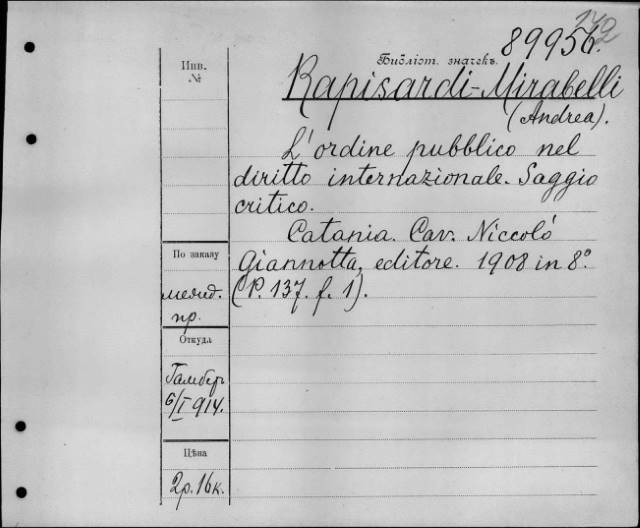 142
89956.
Библіот. значекъ
Rapisardi-Mirabelli
(Andrea).
L'ordine pubblico nel
diritto internazionale. Saggio
critico.
Catania. Cav. Niccoló
Giannotta, editore. 1908 in 8°.
(P. 137. f. 1).
Инв.
№
По заказу
межд.
пр.
Откуда
Гамбер
6/I 914.
Цѣна
2р. 16к.